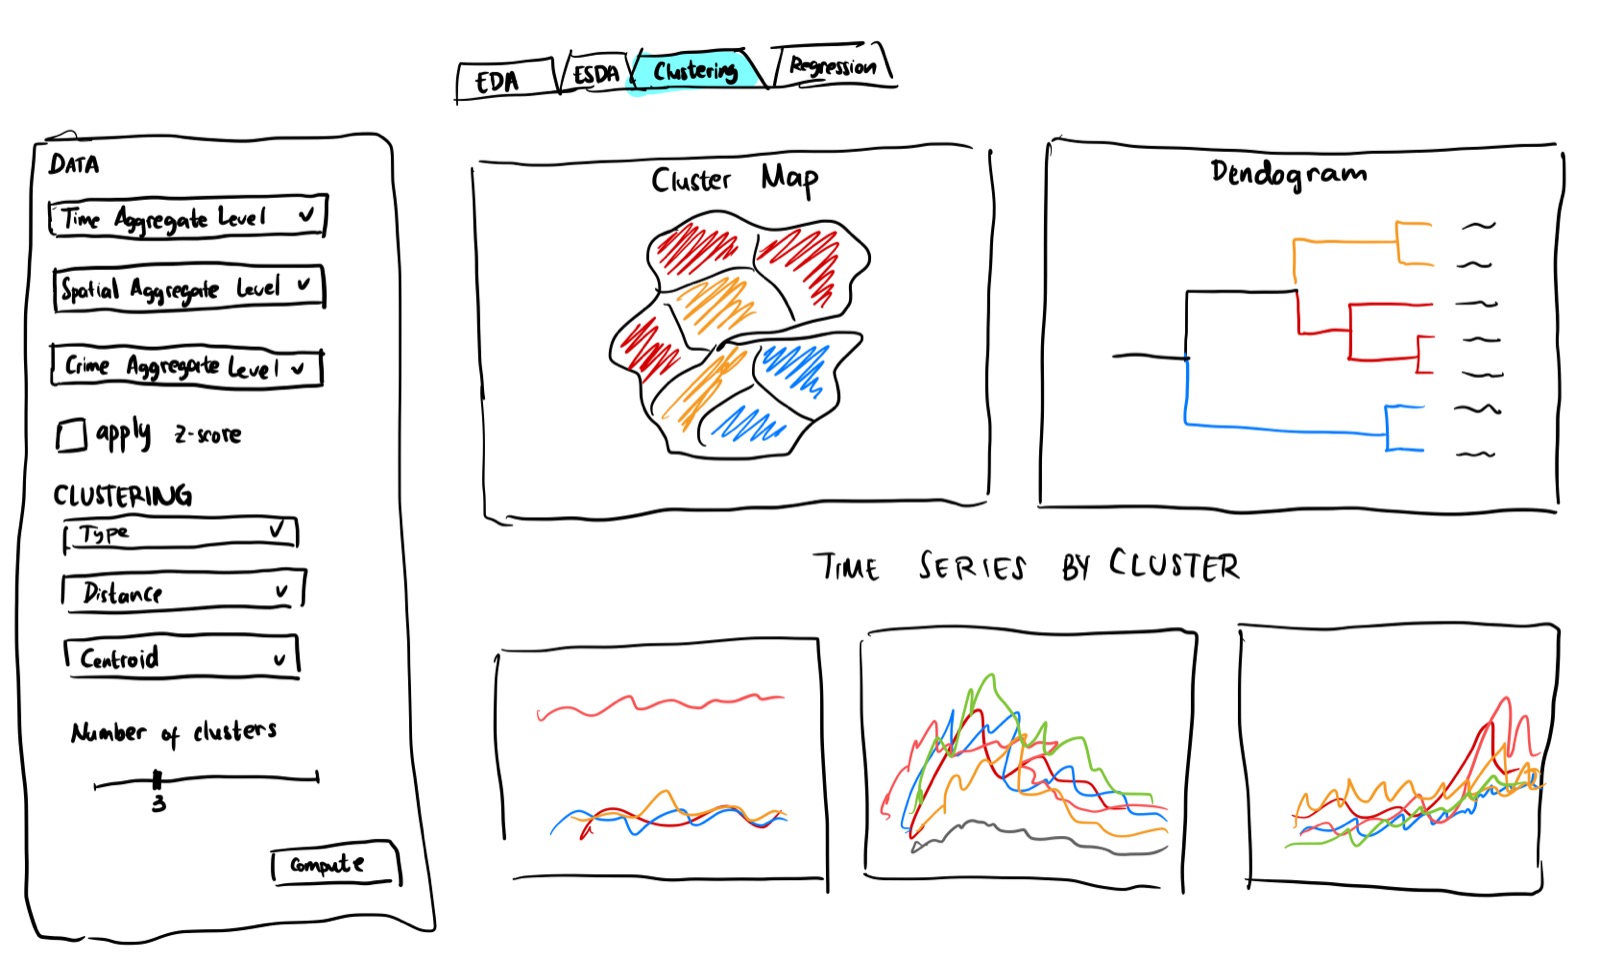 EDA
ESDA
Clustering
Regression
DATA
Time Aggregate Level
Spatial Aggregate Level
Crime Aggregate Level
apply z-score
CLUSTERING
Type
Distance
Centroid
Number of clusters
3
Compute
Cluster Map
Dendogram
TIME SERIES BY CLUSTER